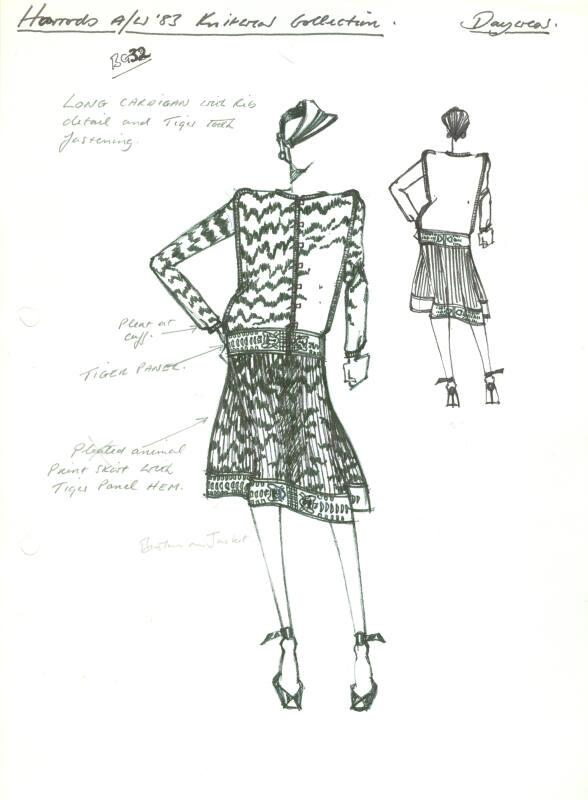 Harrods A/W '83 Knitwear Collection.
Daywear.
BG32
LONG CARDIGAN with Rib
detail and Tiger tooth
fastening.
Pleat at
cuff.
TIGER PANEL.
Pleated animal
Print skirt with
Tiger Panel HEM.
on Jacket